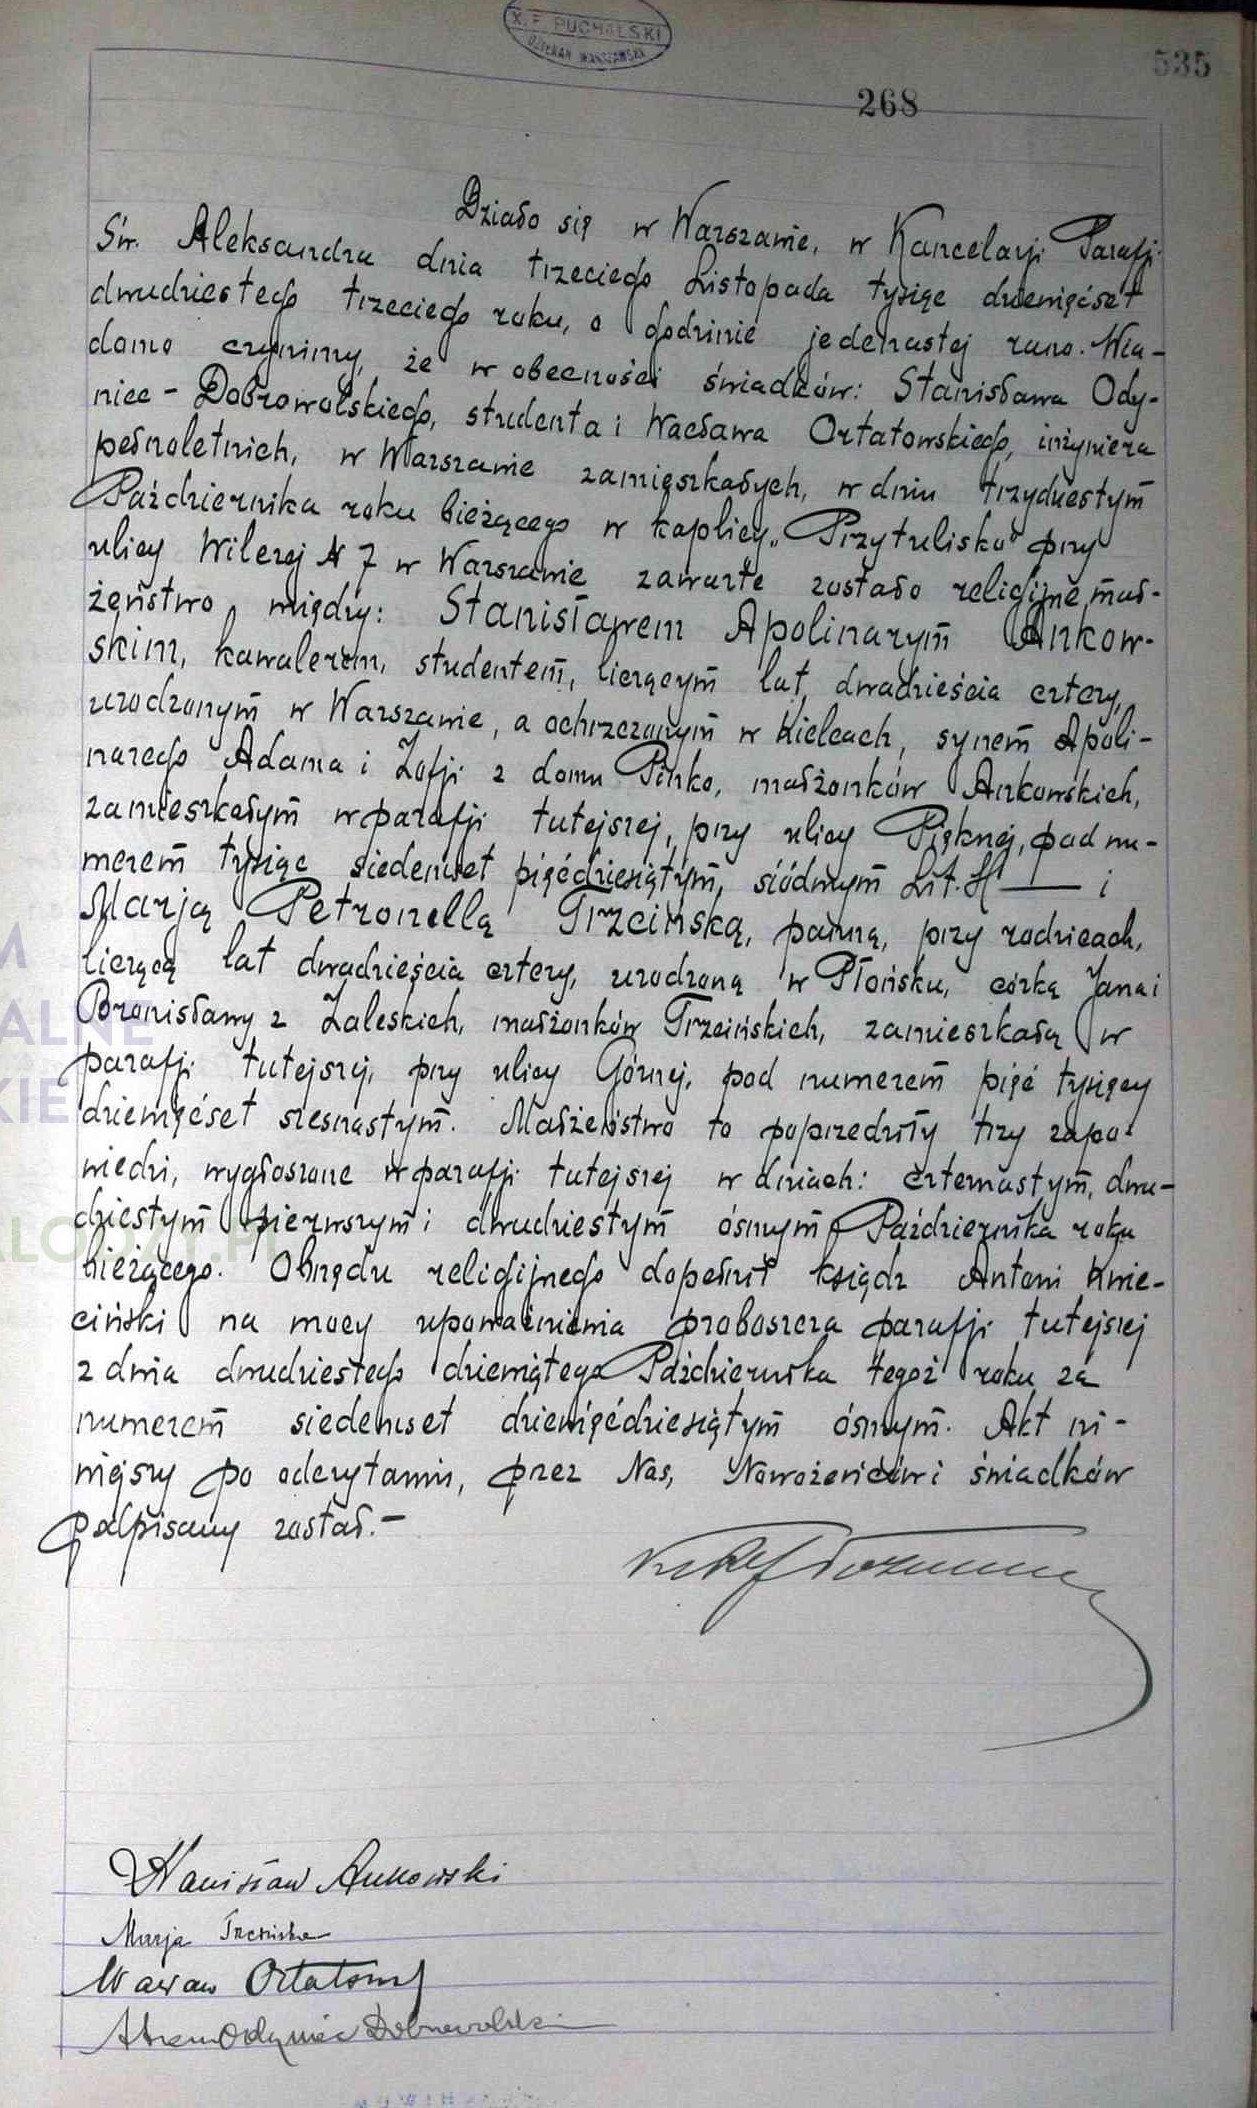 X. F. PUCHALSKI
DZIEKAN WARSZAWSKI
535
268
Działo się w Warszawie, w Kancelarji Parafji
Św. Aleksandra dnia trzeciego Listopada tysiąc dziewięćset
dwudziestego trzeciego roku, o godzinie jedenastej rano. Wia-
domo czynimy, że w obecności świadków: Stanisława Ody-
niec-Dobrowolskiego, studenta i Wacława Ortatowskiego, inżyniera
pełnoletnich, w Warszawie zamieszkałych, w dniu trzydziestym
Października roku bieżącego w kaplicy „Przytulisko" przy
ulicy Wilczej N 7 w Warszawie zawarte zostało religijne mał-
żeństwo między: Stanisławem Apolinarym Ankow-
skim, kawalerem, studentem, liczącym lat dwadzieścia cztery,
urodzonym w Warszawie, a ochrzczonym w Kielcach, synem Apoli-
narego Adama i Zofji z domu Pinko, małżonków Ankowskich,
zamieszkałym w parafji tutejszej, przy ulicy Pięknej, pod nu-
merem tysiąc siedemset pięćdziesiątym, siódmym Lit. H — i
Marją Petronellą Trzcińską, panną, przy rodzicach,
liczącą lat dwadzieścia cztery, urodzoną w Płońsku, córką Jana i
Bronisławy z Zaleskich, małżonków Trzcińskich, zamieszkałą w
parafji tutejszej, przy ulicy Górnej, pod numerem pięć tysięcy
dziewięćset szesnastym. Małżeństwo to poprzedziły trzy zapo-
wiedzi, wygłoszone w parafji tutejszej w dniach: czternastym, dwu-
dziestym pierwszym i dwudziestym ósmym Października roku
bieżącego. Obrzędu religijnego dopełnił ksiądz Antoni Kwie-
ciński na mocy upoważnienia proboszcza parafji tutejszej
z dnia dwudziestego dziewiątego Października tegoż roku za
numerem siedemset dziewięćdziesiątym ósmym. Akt ni-
niejszy po odczytaniu, przez Nas, Nowożeńców i świadków
podpisany został.-
Stanisław Ankowski
Marja Trzcińska
Wacław Ortatows
Odyniec Dobrowolski